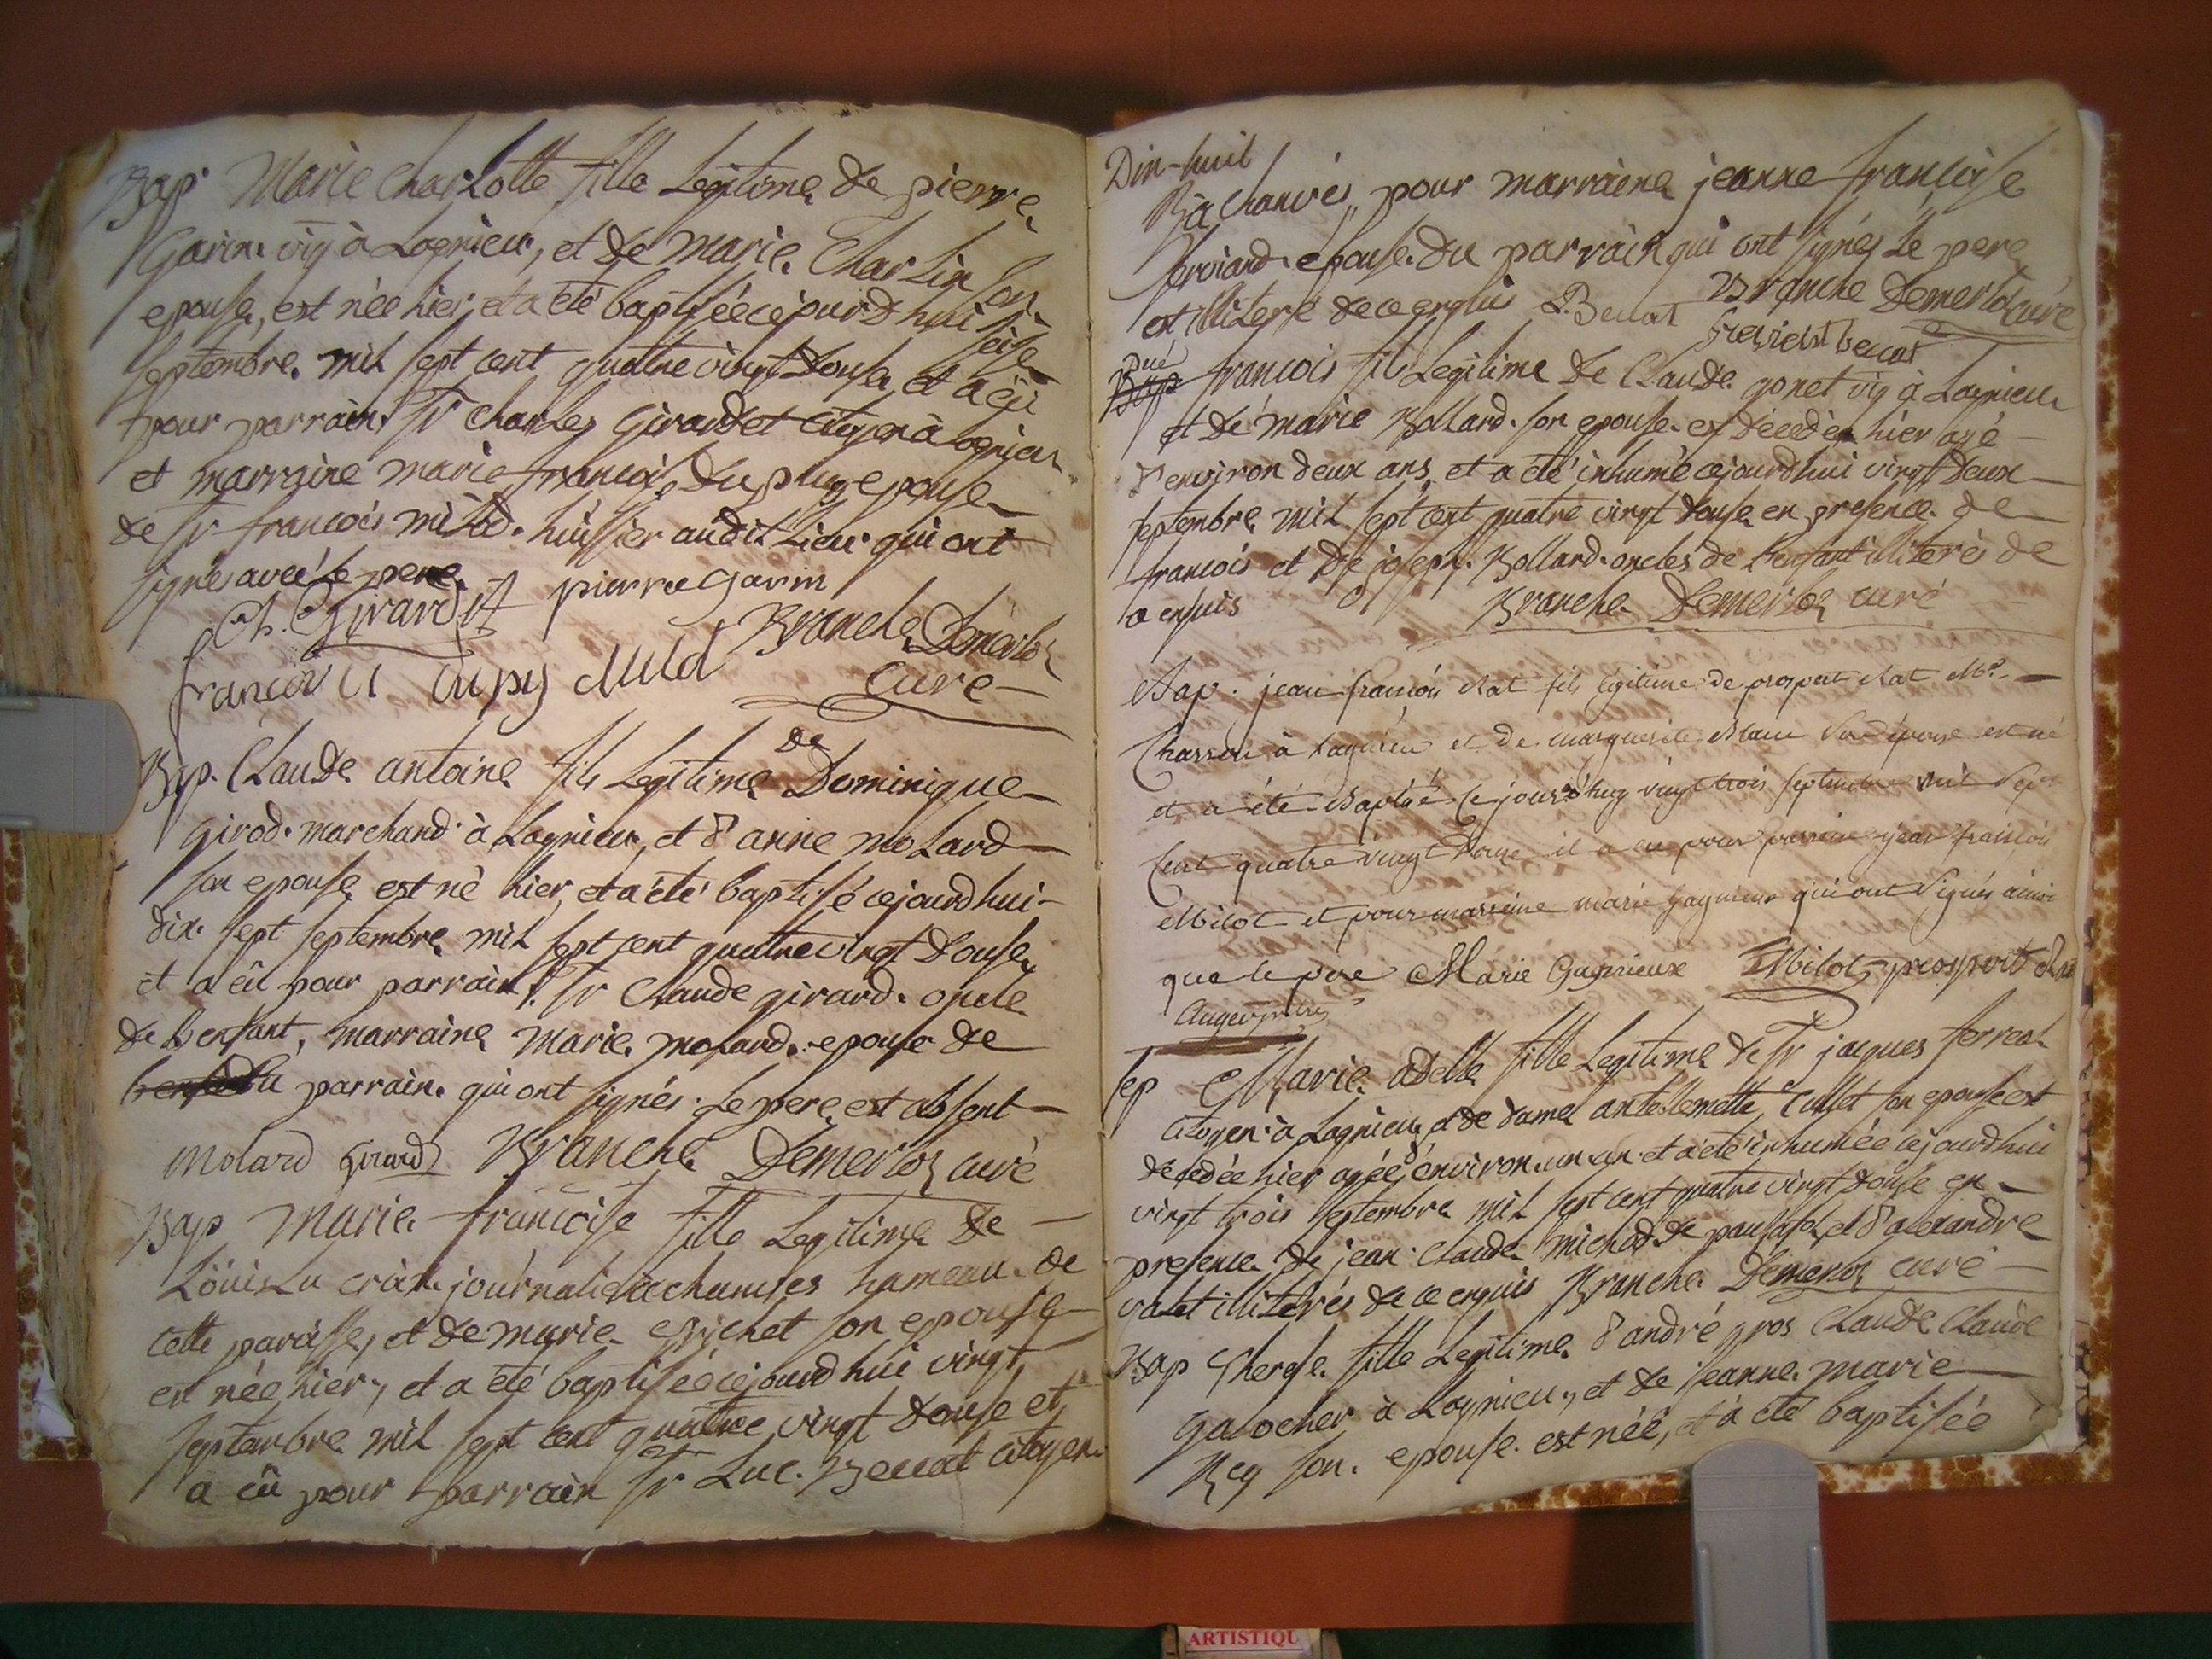 Bap Marie Charlotte fille Legitime de pierre
Garin vig à Lagnieu, et de marie Charlin son
epouse, est née hier, et a été baptisée cejourdhui seise
septembre mil sept cent quatre vingt douse, et a eû
pour parrain Sr Charles Girardet citoyen à Lagnieu
et marraine marie françoise Dupuy epouse
de Sr francois milod huissier audit Lieu qui ont
signés avec le pere
Ch. Girardet pierre garin
Branche Demerloz
dupuy Milod
curé
Bap. Claude antoine fils Legitime de Dominique
girod marchand à Lagnieu, et d'anne moLard
son epouse est né hier, et a été baptisé cejourdhui
dix sept septembre mil sept cent quatre vingt douse,
et a eû pour parrain Sr Claude girard oncle
de L'enfant, marraine marie molard epouse de
du parrain qui ont signés. Le pere est absent
Molard Girard Branche Demerloz curé
Bap Marie francoise fille Legitime de
Loüis journalier chanves hameau de
cette paroisse, et de marie Brichet son epouse
est née hier, et a été baptisée cejourdhui vingt
septembre mil sept cent quatre vingt douse et
a eû pour parrain Sr Luc Beccat citoyen
Dix-huit
à chanves, pour marraine jeanne françoise
epouse du parrain qui ont signés Le pere
est illiteré de ce enquis L. Beccat Branche Demerloz curé
Beccat
francois fils Legitime de Claude gonet vig à Lagnieu
et de marie Bollard son epouse est décedé hier agé
d'environ deux ans, et a été inhumé cejourdhui vingt deux
septembre mil sept cent quatre vingt douse en presence de
francois et de joseph Bollard oncles de L'enfant illiterés de
ce enquis Branche Demerloz curé
Bap. jean françois Rat fils légitime de prosper Rat Md
à Lagnieu et de marguerite Blanc Son épouse est né
et a été Baptisé Cejourd'huy vingt trois septembre mil Sept
Cent quatre vingt Douze il a eu pour parrain jean francois
Milot et pour marraine marie gagnieux qui ont Signés ainsi
que le père Marie Gagnieux Milot prosper Rat
Sep Marie adelle fille Legitime de Sr jacques ferrest
citoyen à Lagnieu, et de dame son epouse est
décedée hier agée d'environ un an et a été inhumée cejourdhui
vingt trois septembre mil sept cent quatre vingt douse en
presence de jean Claude michod de et d'alexandre
valet illiterés de ce enquis Branche Demerloz curé
Bap Therese fille Legitime d'andré gros Claude Claude
galocher à Lagnieu, et de jeanne marie
Rey son epouse est née, et a été baptisée
ARTISTIQU